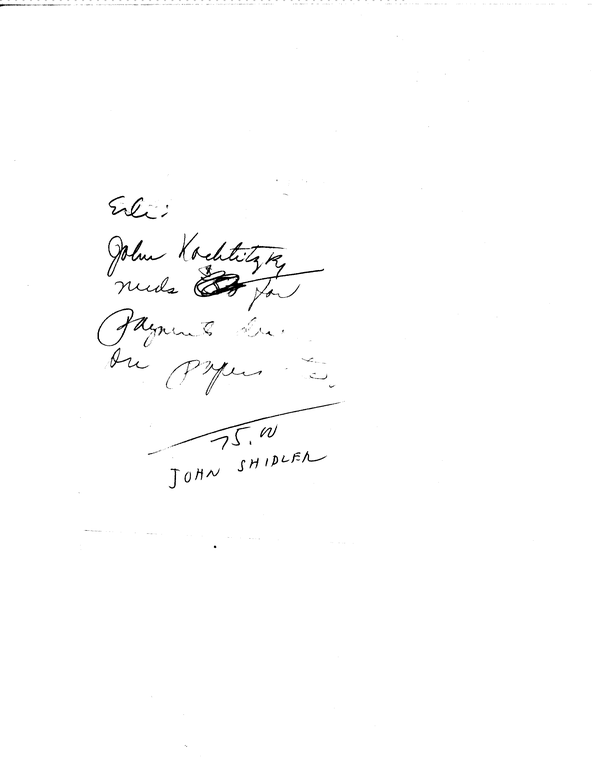 Erle:
John Kochtitzky
needs $ for
payments due
on papers
75.00
JOHN SHIDLER